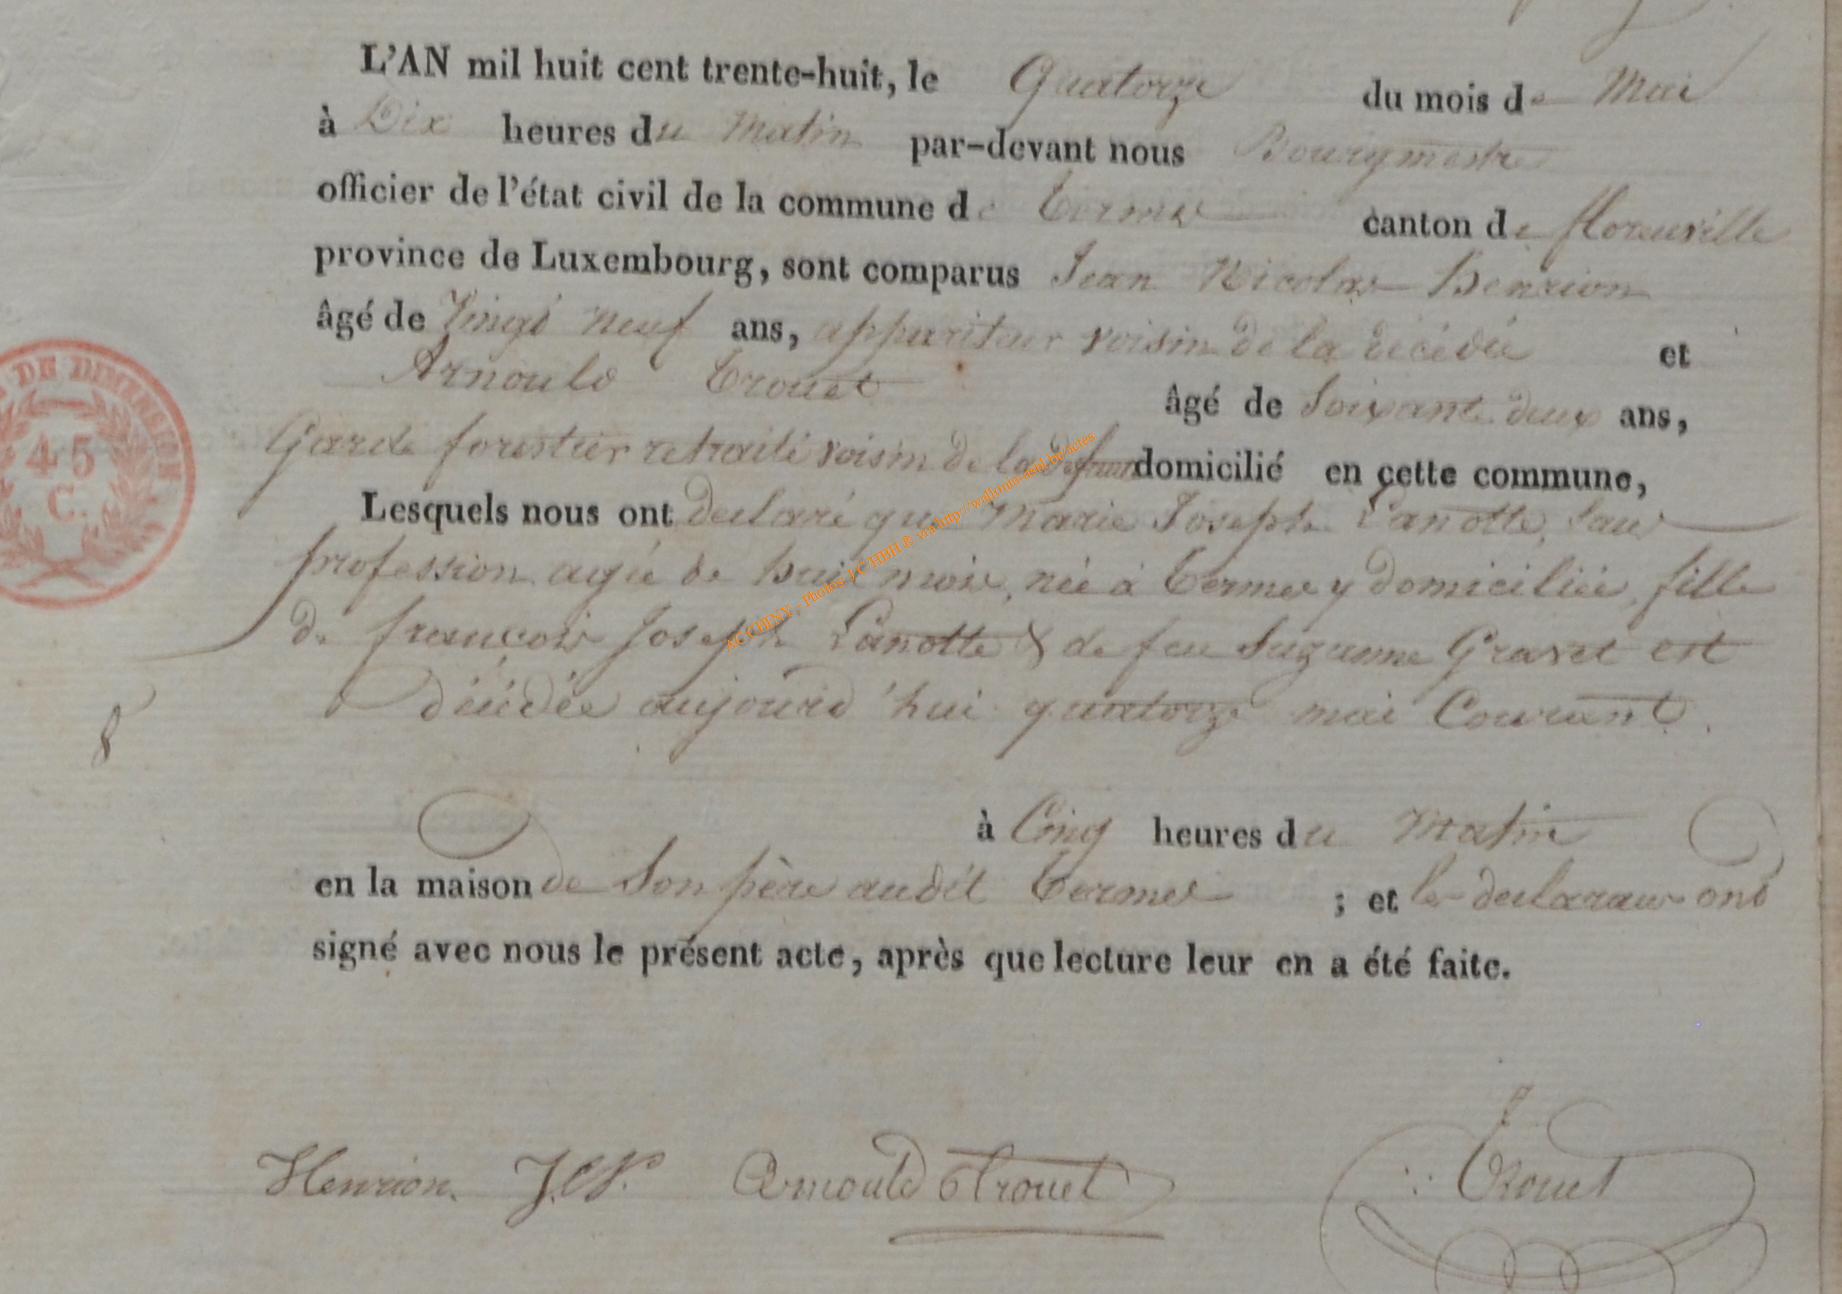 L'AN mil huit cent trente-huit, le Quatorze du mois de Mai
à Dix heures du Matin par-devant nous Bourgmestre
officier de l'état civil de la commune de Termes canton de florenville
province de Luxembourg, sont comparus Jean Nicolas Henrion
âgé de Vingt neuf ans, appariteur voisin de la décédée et
Arnould Trouet âgé de Soixante deux ans,
Garde forestier retraité voisin de la domicilié en cette commune,
Lesquels nous ont declaré que Marie Joseph Lanotte, sans
profession agée de huit mois, née à Termes y domiciliée, fille
de françois Joseph Lanotte & de feu Suzanne Gravet est
décédée aujourd'hui quatorze mai Courant.
à Cinq heures du Matin
en la maison de Son père audit Termes ; et les declarans ont
signé avec nous le présent acte, après que lecture leur en a été faite.
DE DIMENSION
45
C.
8
ACCHINY - Photos JC HBH & via http://wallonia-asbl.be/actes
Henrion. J.N. Arnould Trouet Trouet